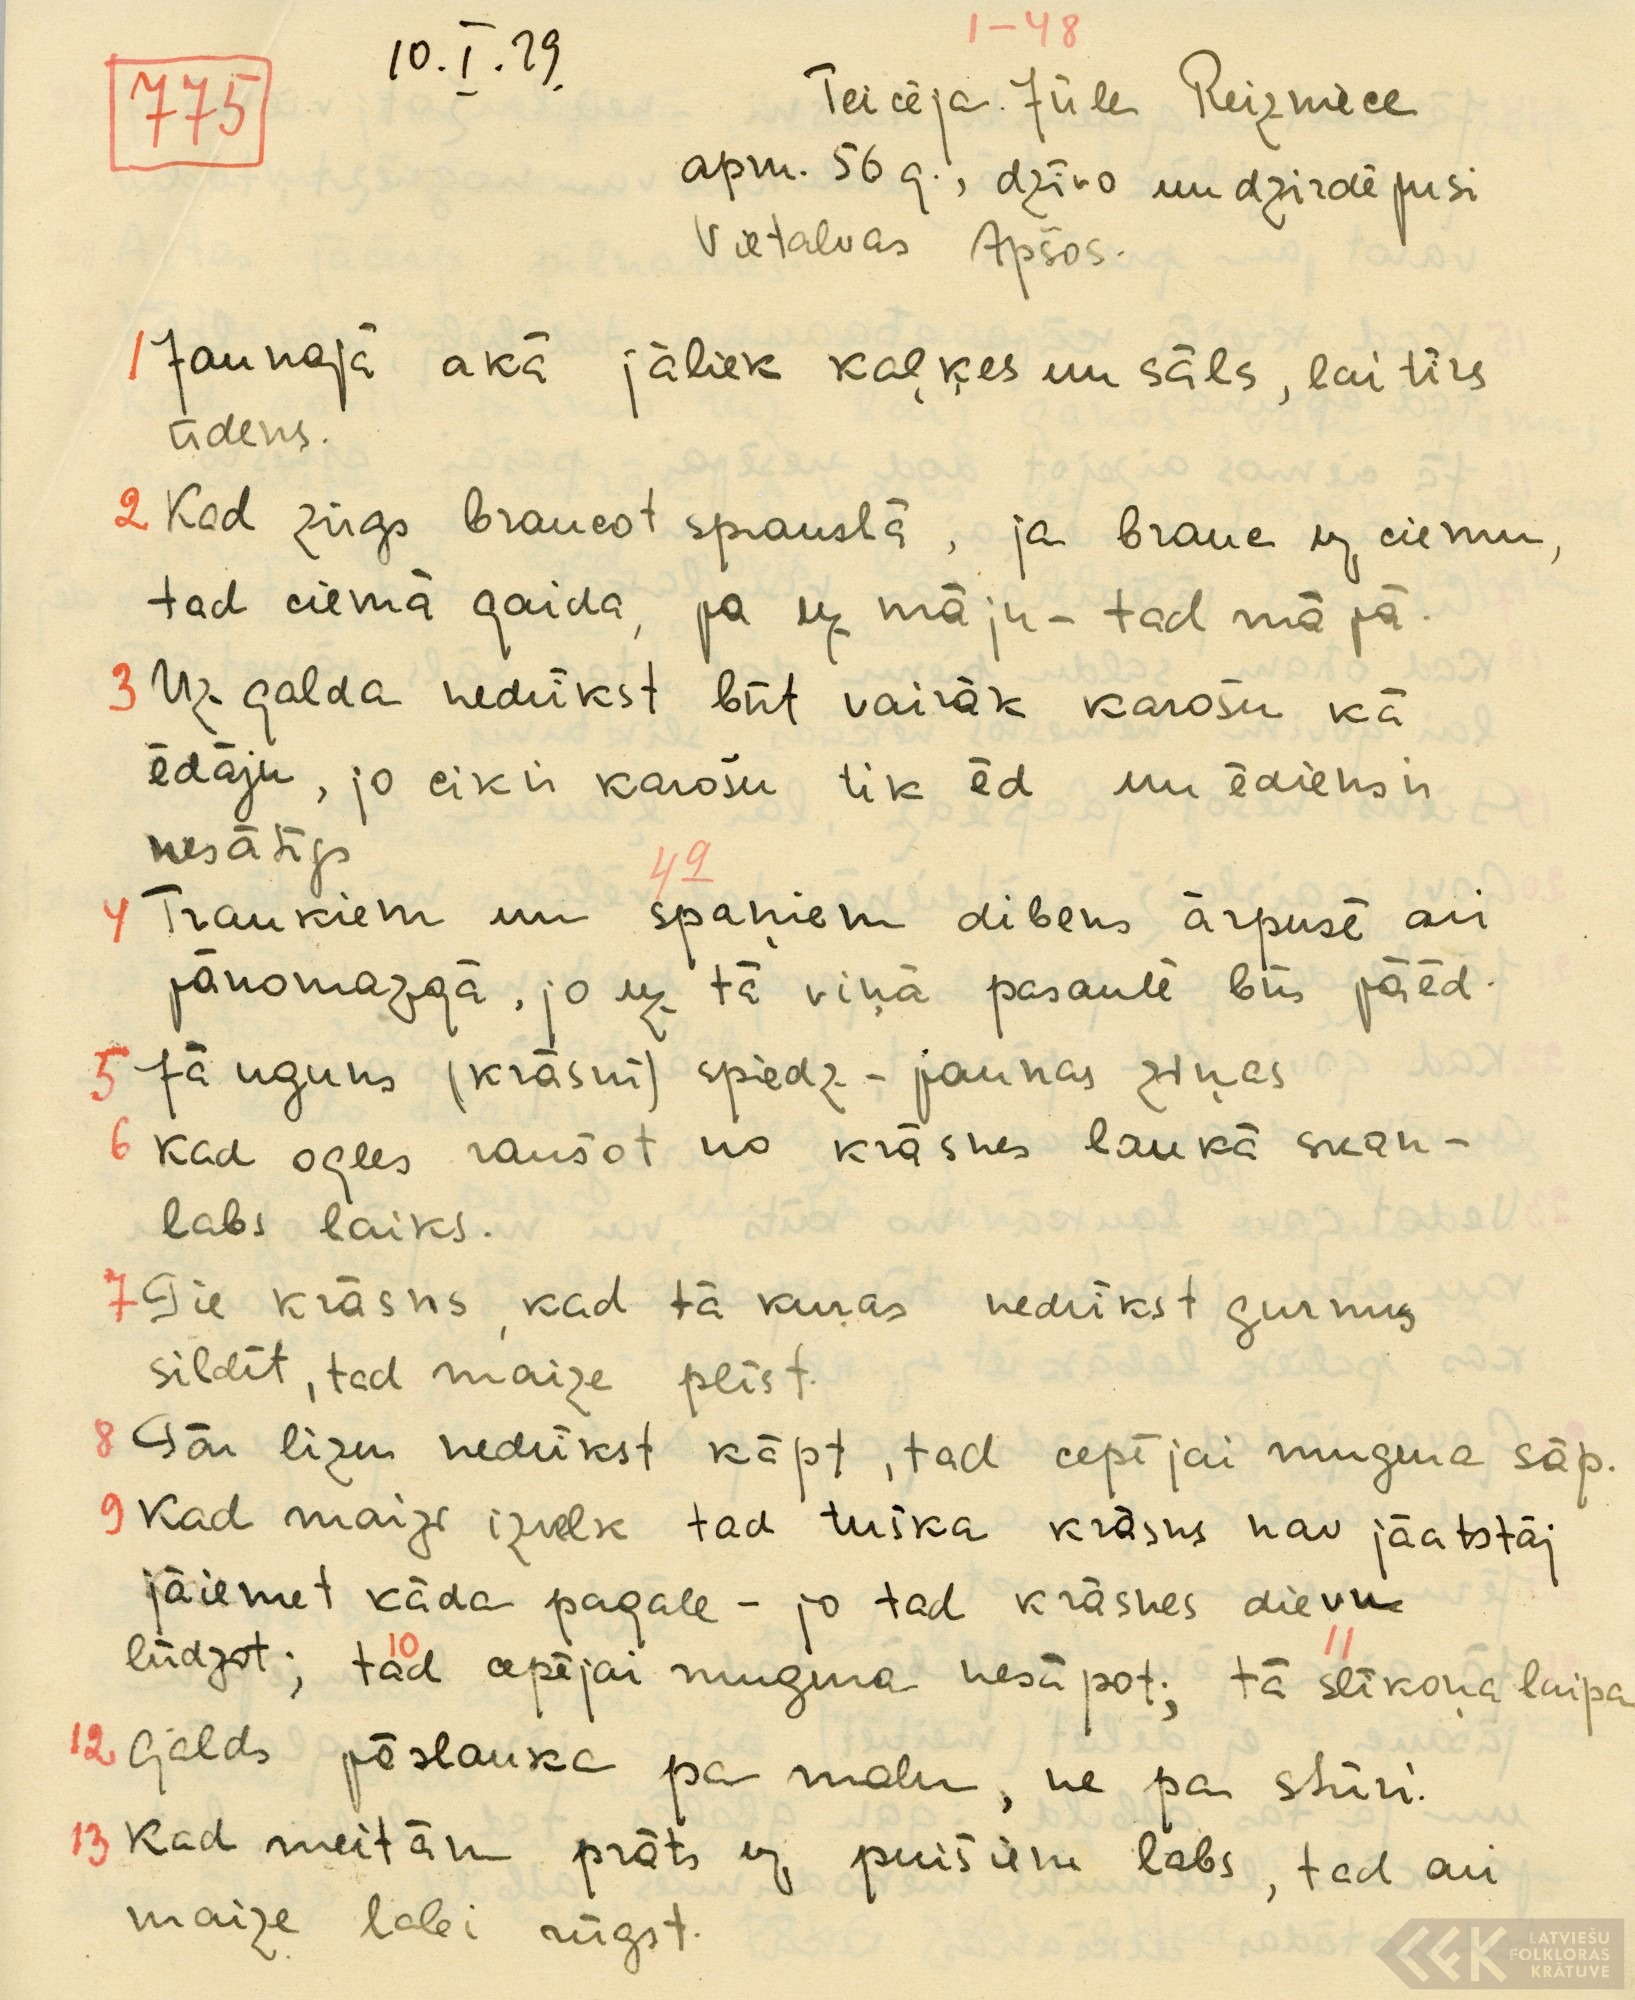 1-48
775
10.I.29.
Teicēja Jūle Reizniece
apm. 56 g., dzīvo un dzirdējusi
Vietalvas Apšos.
1 Jaunajā akā jāliek kaļķes un sāls, lai tīrs
ūdens.
2 Kad zirgs braucot sprauslā, ja brauc uz ciemu,
tad ciemā gaida, ja uz māju - tad mājā.
3 Uz galda nedrīkst būt vairāk karošu kā
ēdāju, jo cik ir karošu tik ēd un ēdiens ir
nesātīgs
49
4 Traukiem un spaņiem dibens ārpusē arī
jānomazgā, jo uz tā viņā pasaulē būs jāēd.
5 Jā uguns (krāsnī) spiedz - jaunas ziņas
6 Kad ogles raušot no krāsnes laukā skan -
labs laiks.
7 Pie krāsns, kad tā kuŗas nedrīkst gurnus
sildīt, tad maize plīst.
8 Pār lizu nedrīkst kāpt, tad cepējai mugura sāp.
9 Kad maizi izvelk tad tukša krāsns nav jāatstāj
jāiemet kāda pagale - jo tad krāsnes dievu
lūdzot; tad cepējai mugura nesāpot; tā slīkoņa laipa
10
11
12 Galds jāslauka pa malu, ne pa stūri.
13 Kad meitām prāts uz puišiem labs, tad arī
maize labi rūgst.
LATVIEŠU
FOLKLORAS
KRĀTUVE